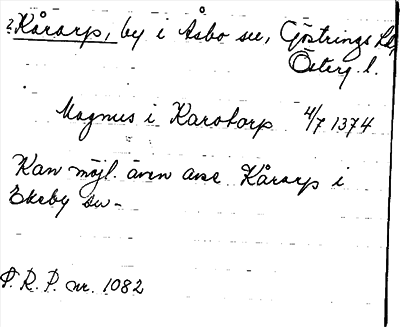 ? Kårarp, by i Åsbo sn, Göstrings hd,
Österg. l.
Magnus i Karatorp 4/7 1374
Kan möjl. även avse Kårarp i
Ekeby sn -
P. R. P. nr. 1082